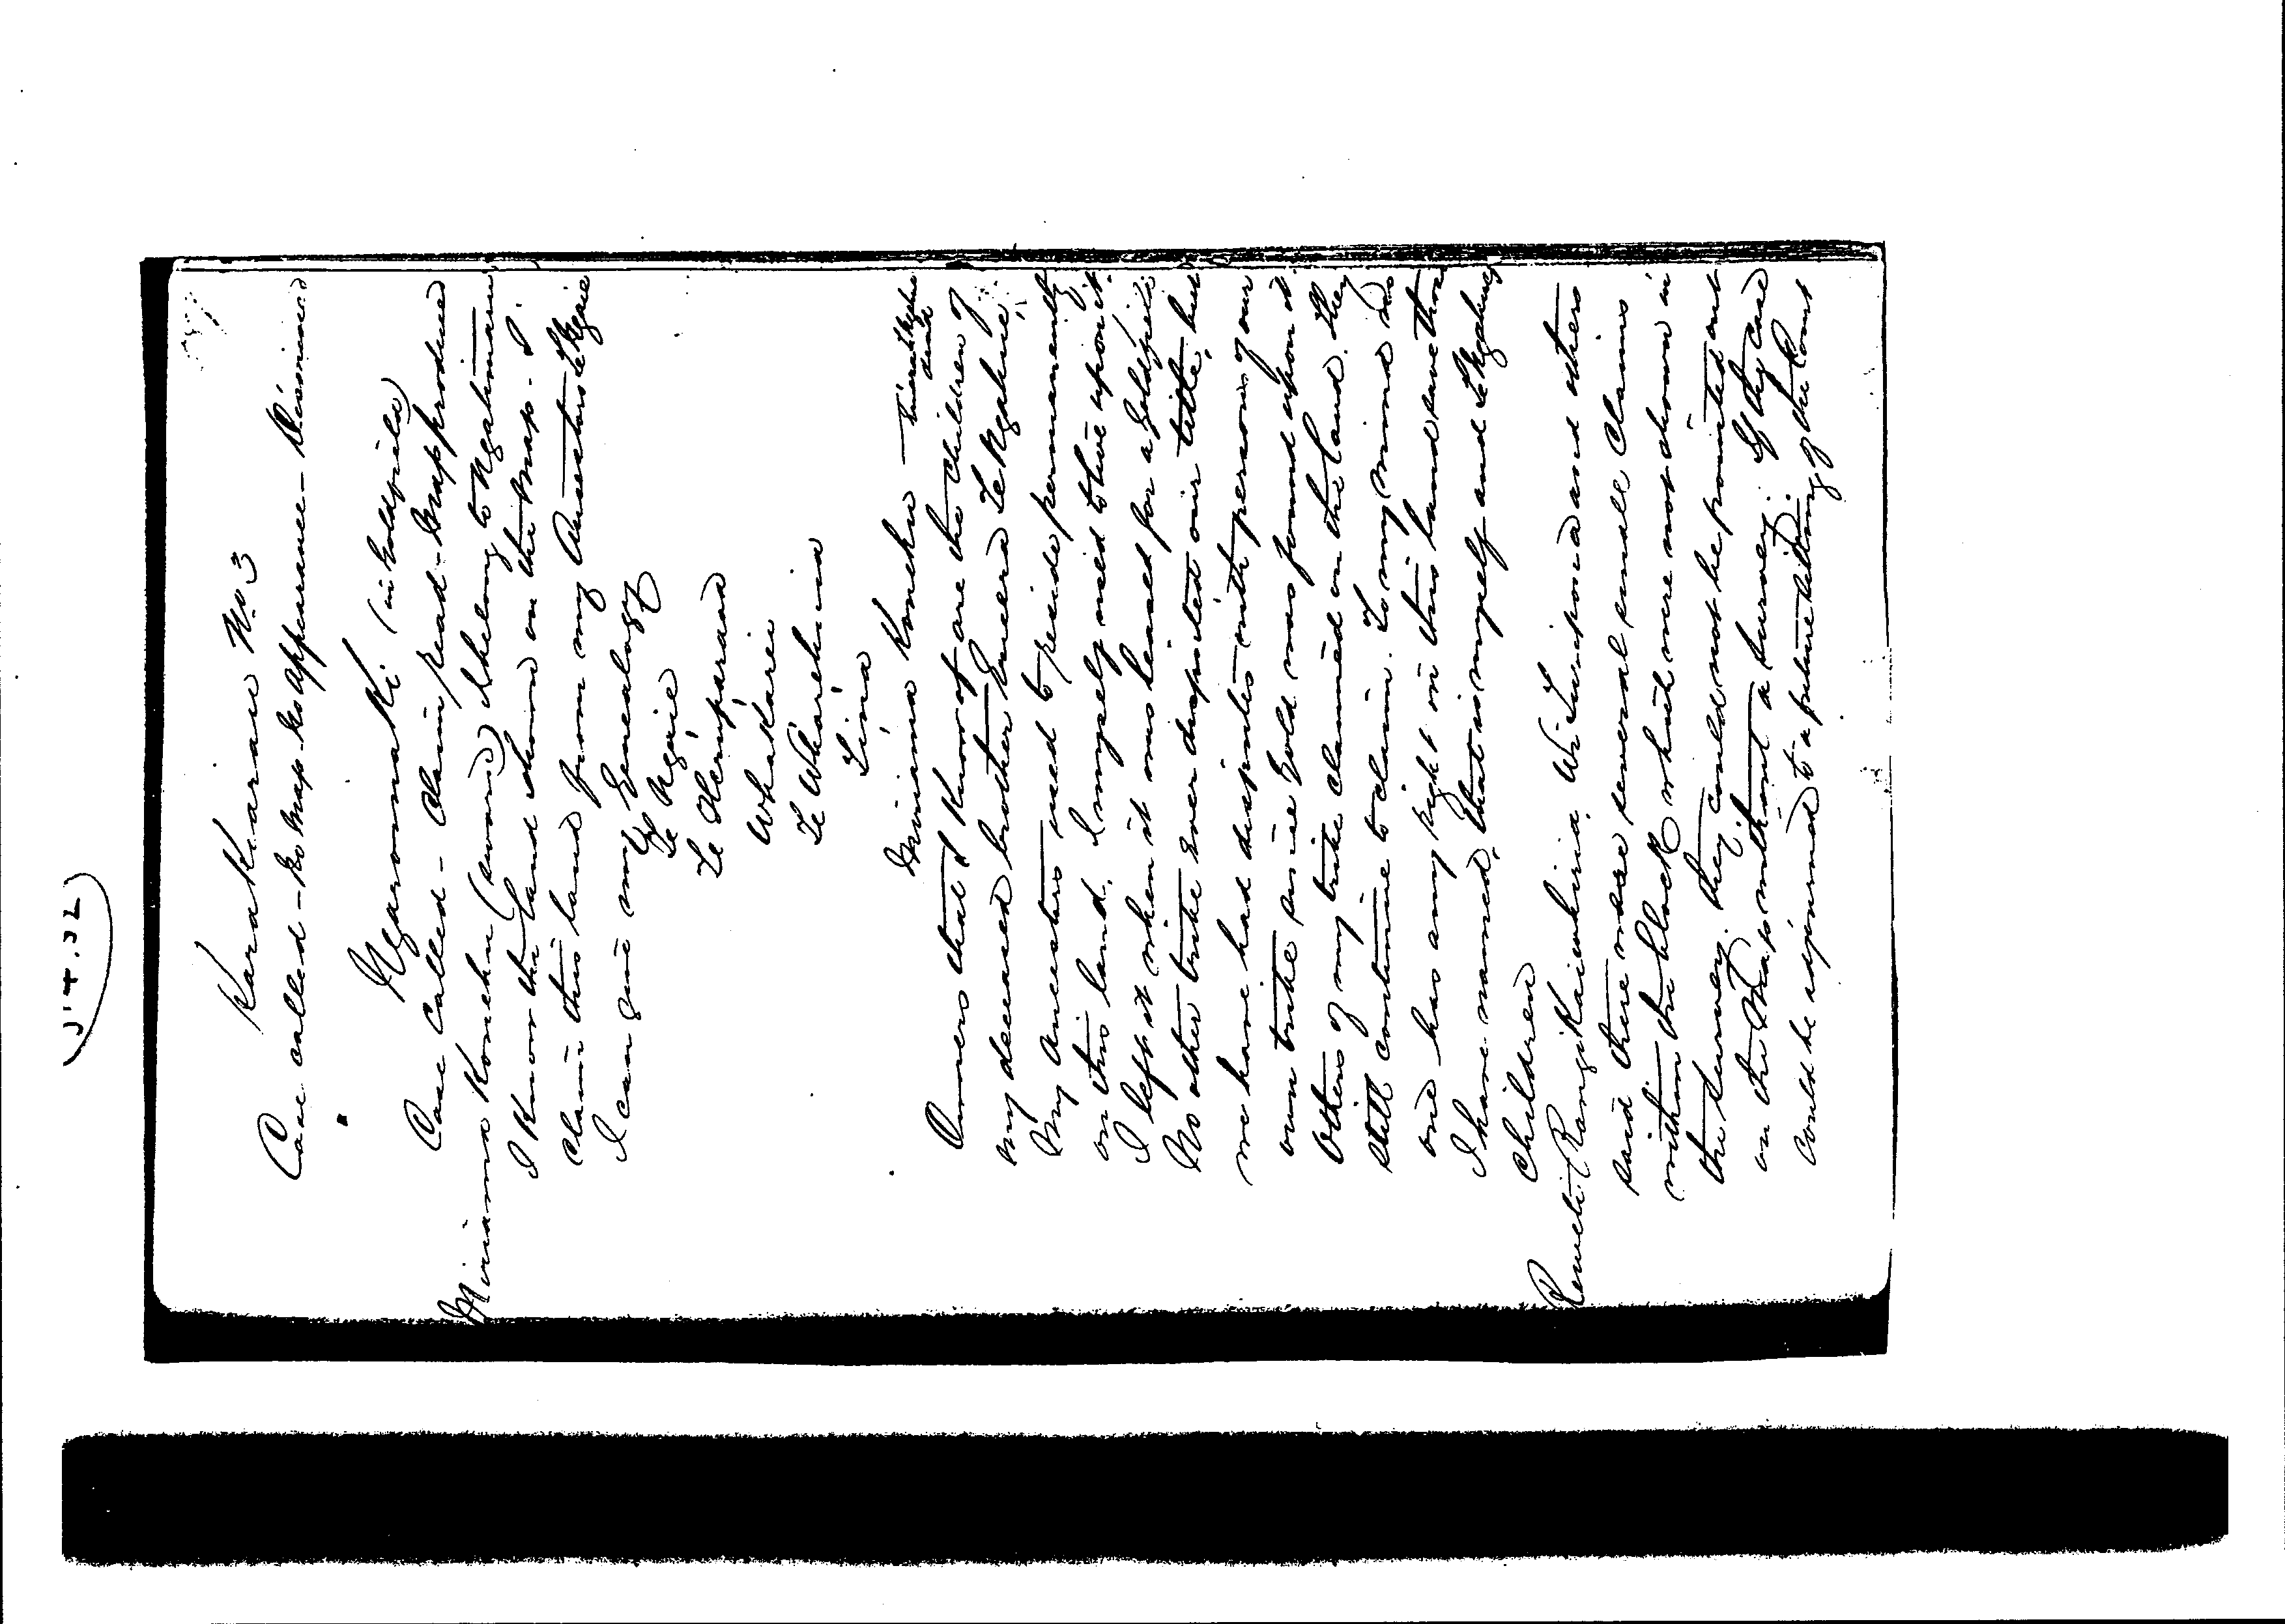 Karakariari No. 3
Case called - No Map - No Appearance - Dismissed
Ngaromaki (in Goldfield)
Case Called - Claim read - Map produced
Miriama Konehu (sworn) I belong to Ngatimaru
I know the land shewn on the Map. I
claim this land from my Ancestors Te Ngaie
I can give my Genealogy
Te Ngaie
Te Heruparara
Whakarei
Te Wharekura
Tina
Miriama Konehu
Owners that I know of are the children of
my deceased brother Te Ngahue,
My ancestors used to reside permanently
on this land. I myself used to live upon it.
I left it when it was leased for a Goldfield
No other tribe ever disputed our title, but
we have had disputes with persons of our
own tribe since Gold was found upon it
Others of my tribe claimed on the land. They
still continue to claim. To my mind no
one has any right on this land save those
I have named, that is myself and Te Ngahue's
Children
Reweti, Rangikaiwhiria, Wi Turipona and others
said there were several small Claims
within the block which were not shown in
the survey. They could not be pointed out
on the Map without a survey. If they case
could be adjourned to a future sitting of the Court